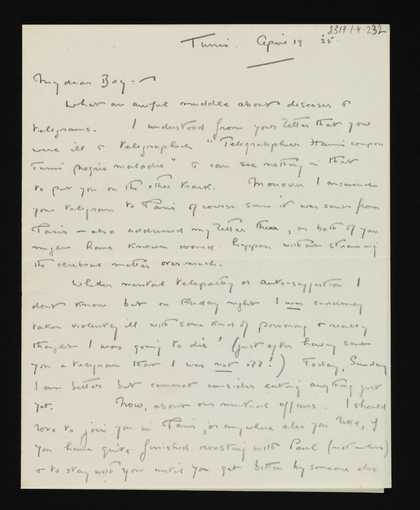 8319/1-4-232
Tunis. April 19 25
My dear Boy:-
What an awful muddle about diseases &
telegrams. I understood from your letter that you
were ill & telegraphed "Telegraphier Hanni coupon
Tunis progrès maladie" & can see nothing in that
to put you on the other track. Moreover I answered
your telegram to Paris of course since it was sent from
Paris - also addressed my letter there, as both of you
might have known would happen without straining
the cerebral matter over much.
Whether mental telepathy or auto-suggestion I
don't know but on Friday night I was suddenly
taken violently ill with some kind of poisoning & really
thought I was going to die! (just after having sent
you a telegram that I was not ill!) Today, Sunday
I am better but cannot consider eating anything just
yet. Now, about our mutual affairs. I should
love to join you in Paris, or anywhere else you like, if
you have quite finished with Paul
or to stay with you until you get better by someone else